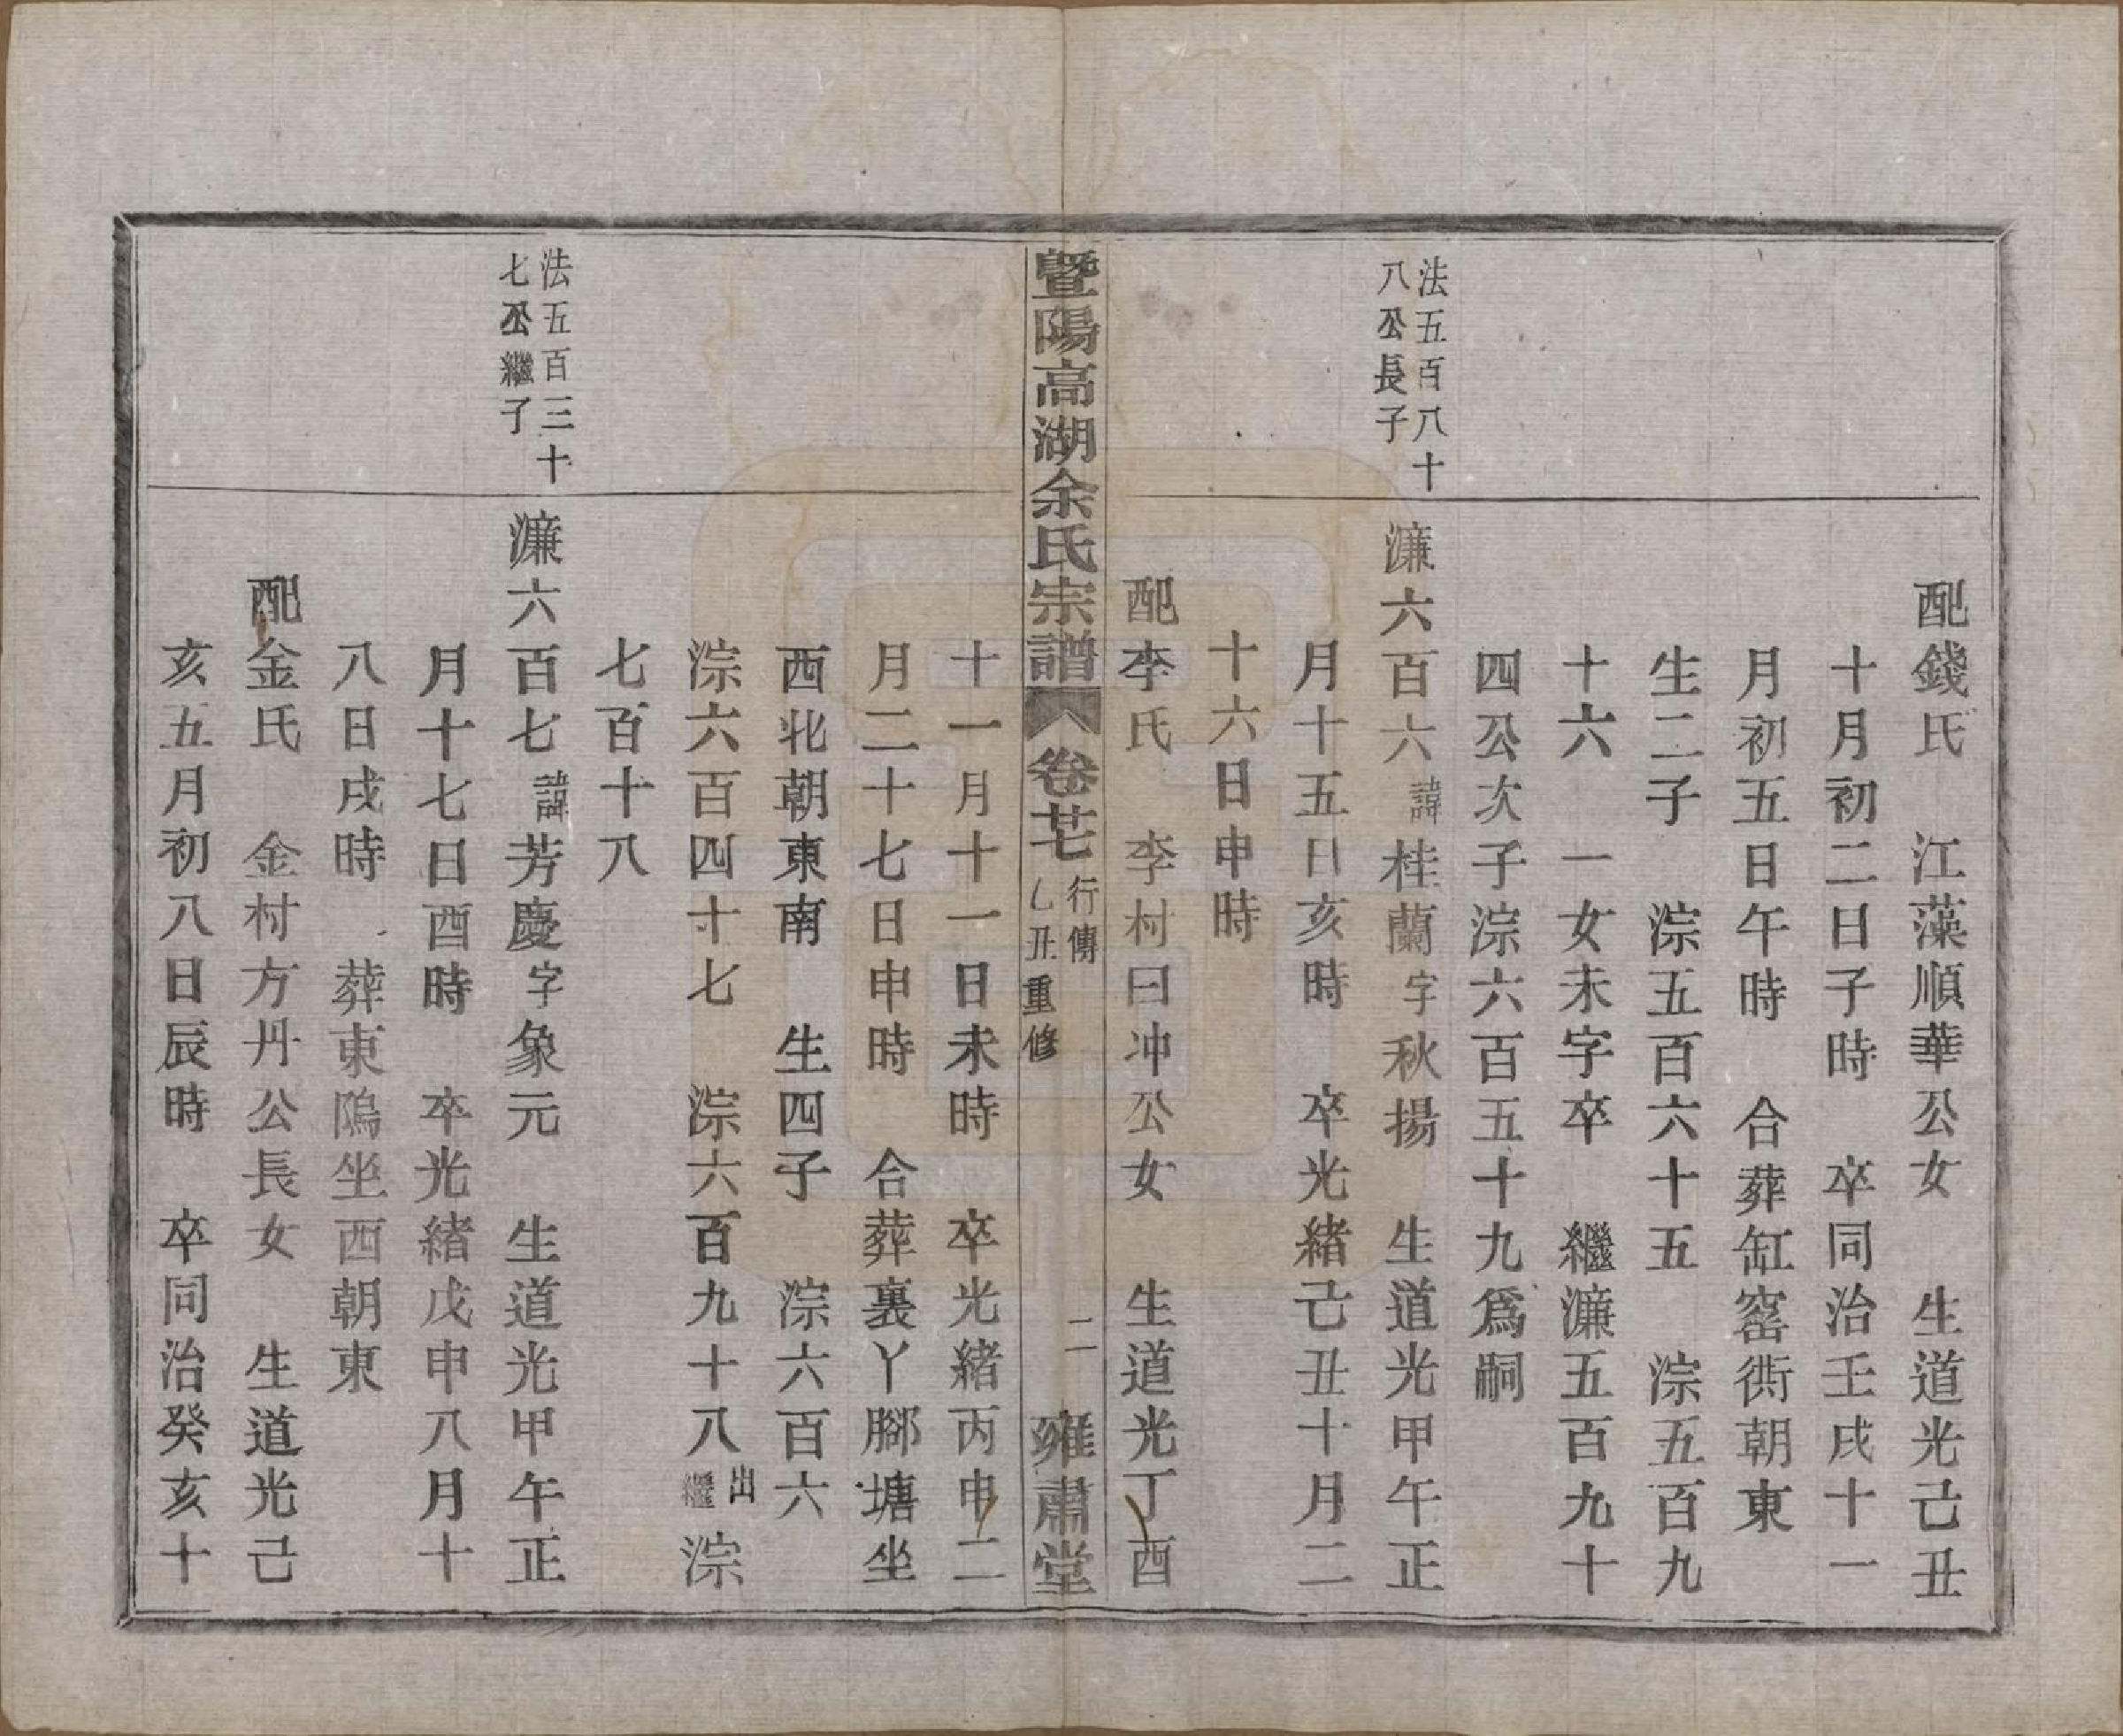 配錢氏　江藻順華公女　生道光己丑
十月初二日子時　卒同治壬戌十一
月初五日午時　合葬缸窰衖朝東
生二子　淙五百六十五　淙五百九
十六　一女未字卒　繼濂五百九十
四公次子淙六百五十九爲嗣
法五百八十
八公長子
濂六百六諱桂蘭字秋揚　生道光甲午正
月十五日亥時　卒光緒己丑十月二
十六日申時
配李氏　李村曰冲公女　生道光丁酉
暨陽高湖余氏宗譜 卷廿七 行傳 乙丑重修 二 雍肅堂
十一月十一日未時　卒光緒丙申二
月二十七日申時　合葬裏丫腳塘坐
西北朝東南　生四子　淙六百六
淙六百四十七　淙六百九十八出繼 淙
七百十八
法五百三十
七公繼子
濂六百七諱芳慶字象元　生道光甲午正
月十七日酉時　卒光緒戊申八月十
八日戌時　葬東隖坐西朝東
配金氏　金村方丹公長女　生道光己
亥五月初八日辰時　卒同治癸亥十